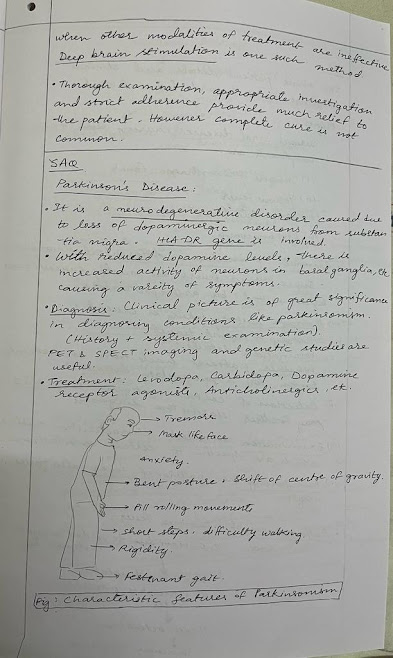 when other modalities of treatment are ineffective
Deep brain stimulation is one such method
• Thorough examination, appropriate investigation
and strict adherence provide much relief to
the patient. However complete cure is not
common.
SAQ
Parkinson's Disease:
• It is a neurodegenerative disorder caused due
to loss of dopaminergic neurons from substan
tia nigra. HLA-DR gene is involved.
• With reduced dopamine levels, there is
increased activity of neurons in basal ganglia, etc
causing a variety of symptoms.
• Diagnosis: Clinical picture is of great significance
in diagnosing conditions like parkinsonism.
(History + systemic examination).
PET & SPECT imaging and genetic studies are
useful.
• Treatment: Levodopa, Carbidopa, Dopamine
receptor agonists, Anticholinergics, etc.
Tremors
Mask like face
Anxiety.
Bent posture, Shift of centre of gravity.
Pill rolling movements
Short steps, difficulty walking.
Rigidity.
Festenant gait.
Fig: Characteristic features of Parkinsonism